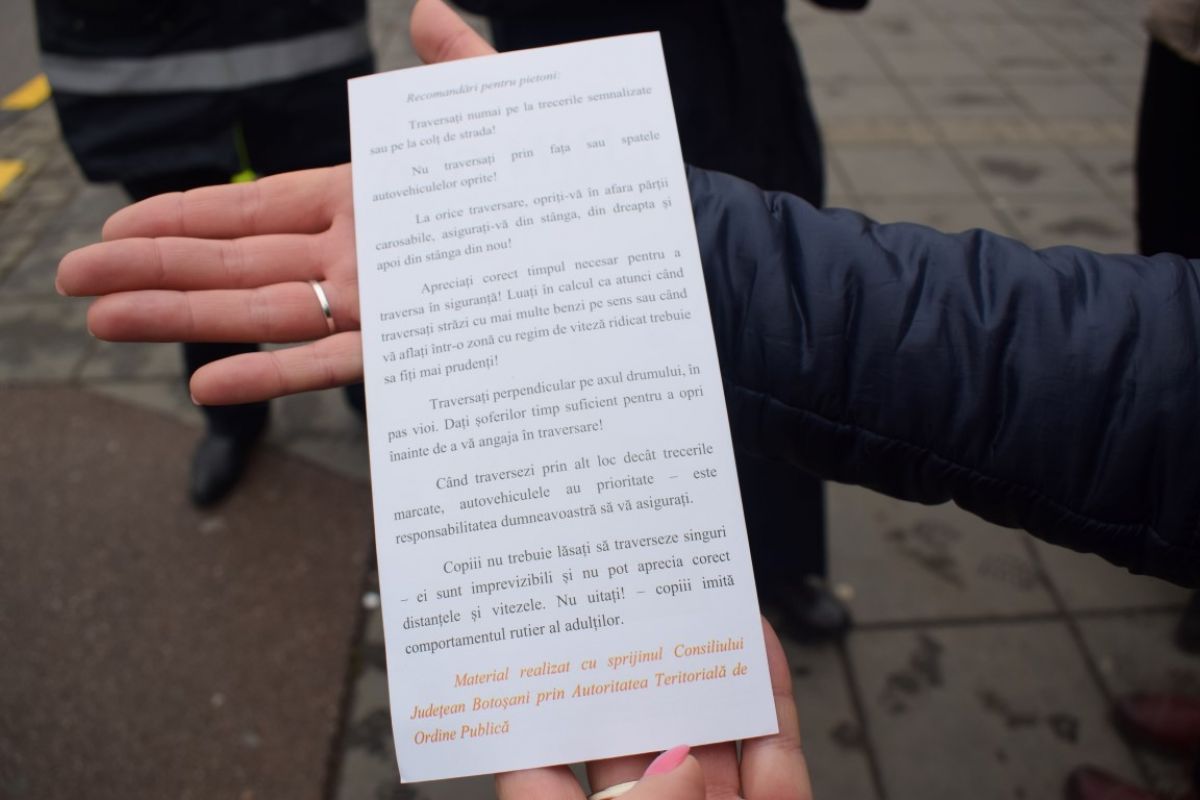 Recomandări pentru pietoni:
Traversați numai pe la trecerile semnalizate
sau pe la colț de strada!
Nu traversați prin fața sau spatele
autovehiculelor oprite!
La orice traversare, opriți-vă în afara părții
carosabile, asigurați-vă din stânga, din dreapta și
apoi din stânga din nou!
Apreciați corect timpul necesar pentru a
traversa în siguranță! Luați în calcul ca atunci când
traversați străzi cu mai multe benzi pe sens sau când
vă aflați într-o zonă cu regim de viteză ridicat trebuie
sa fiți mai prudenți!
Traversați perpendicular pe axul drumului, în
pas vioi. Dați șoferilor timp suficient pentru a opri
înainte de a vă angaja în traversare!
Când traversezi prin alt loc decât trecerile
marcate, autovehiculele au prioritate – este
responsabilitatea dumneavoastră să vă asigurați.
Copiii nu trebuie lăsați să traverseze singuri
– ei sunt imprevizibili și nu pot aprecia corect
distanțele și vitezele. Nu uitați! – copiii imită
comportamentul rutier al adulților.
Material realizat cu sprijinul Consiliului
Județean Botoșani prin Autoritatea Teritorială de
Ordine Publică